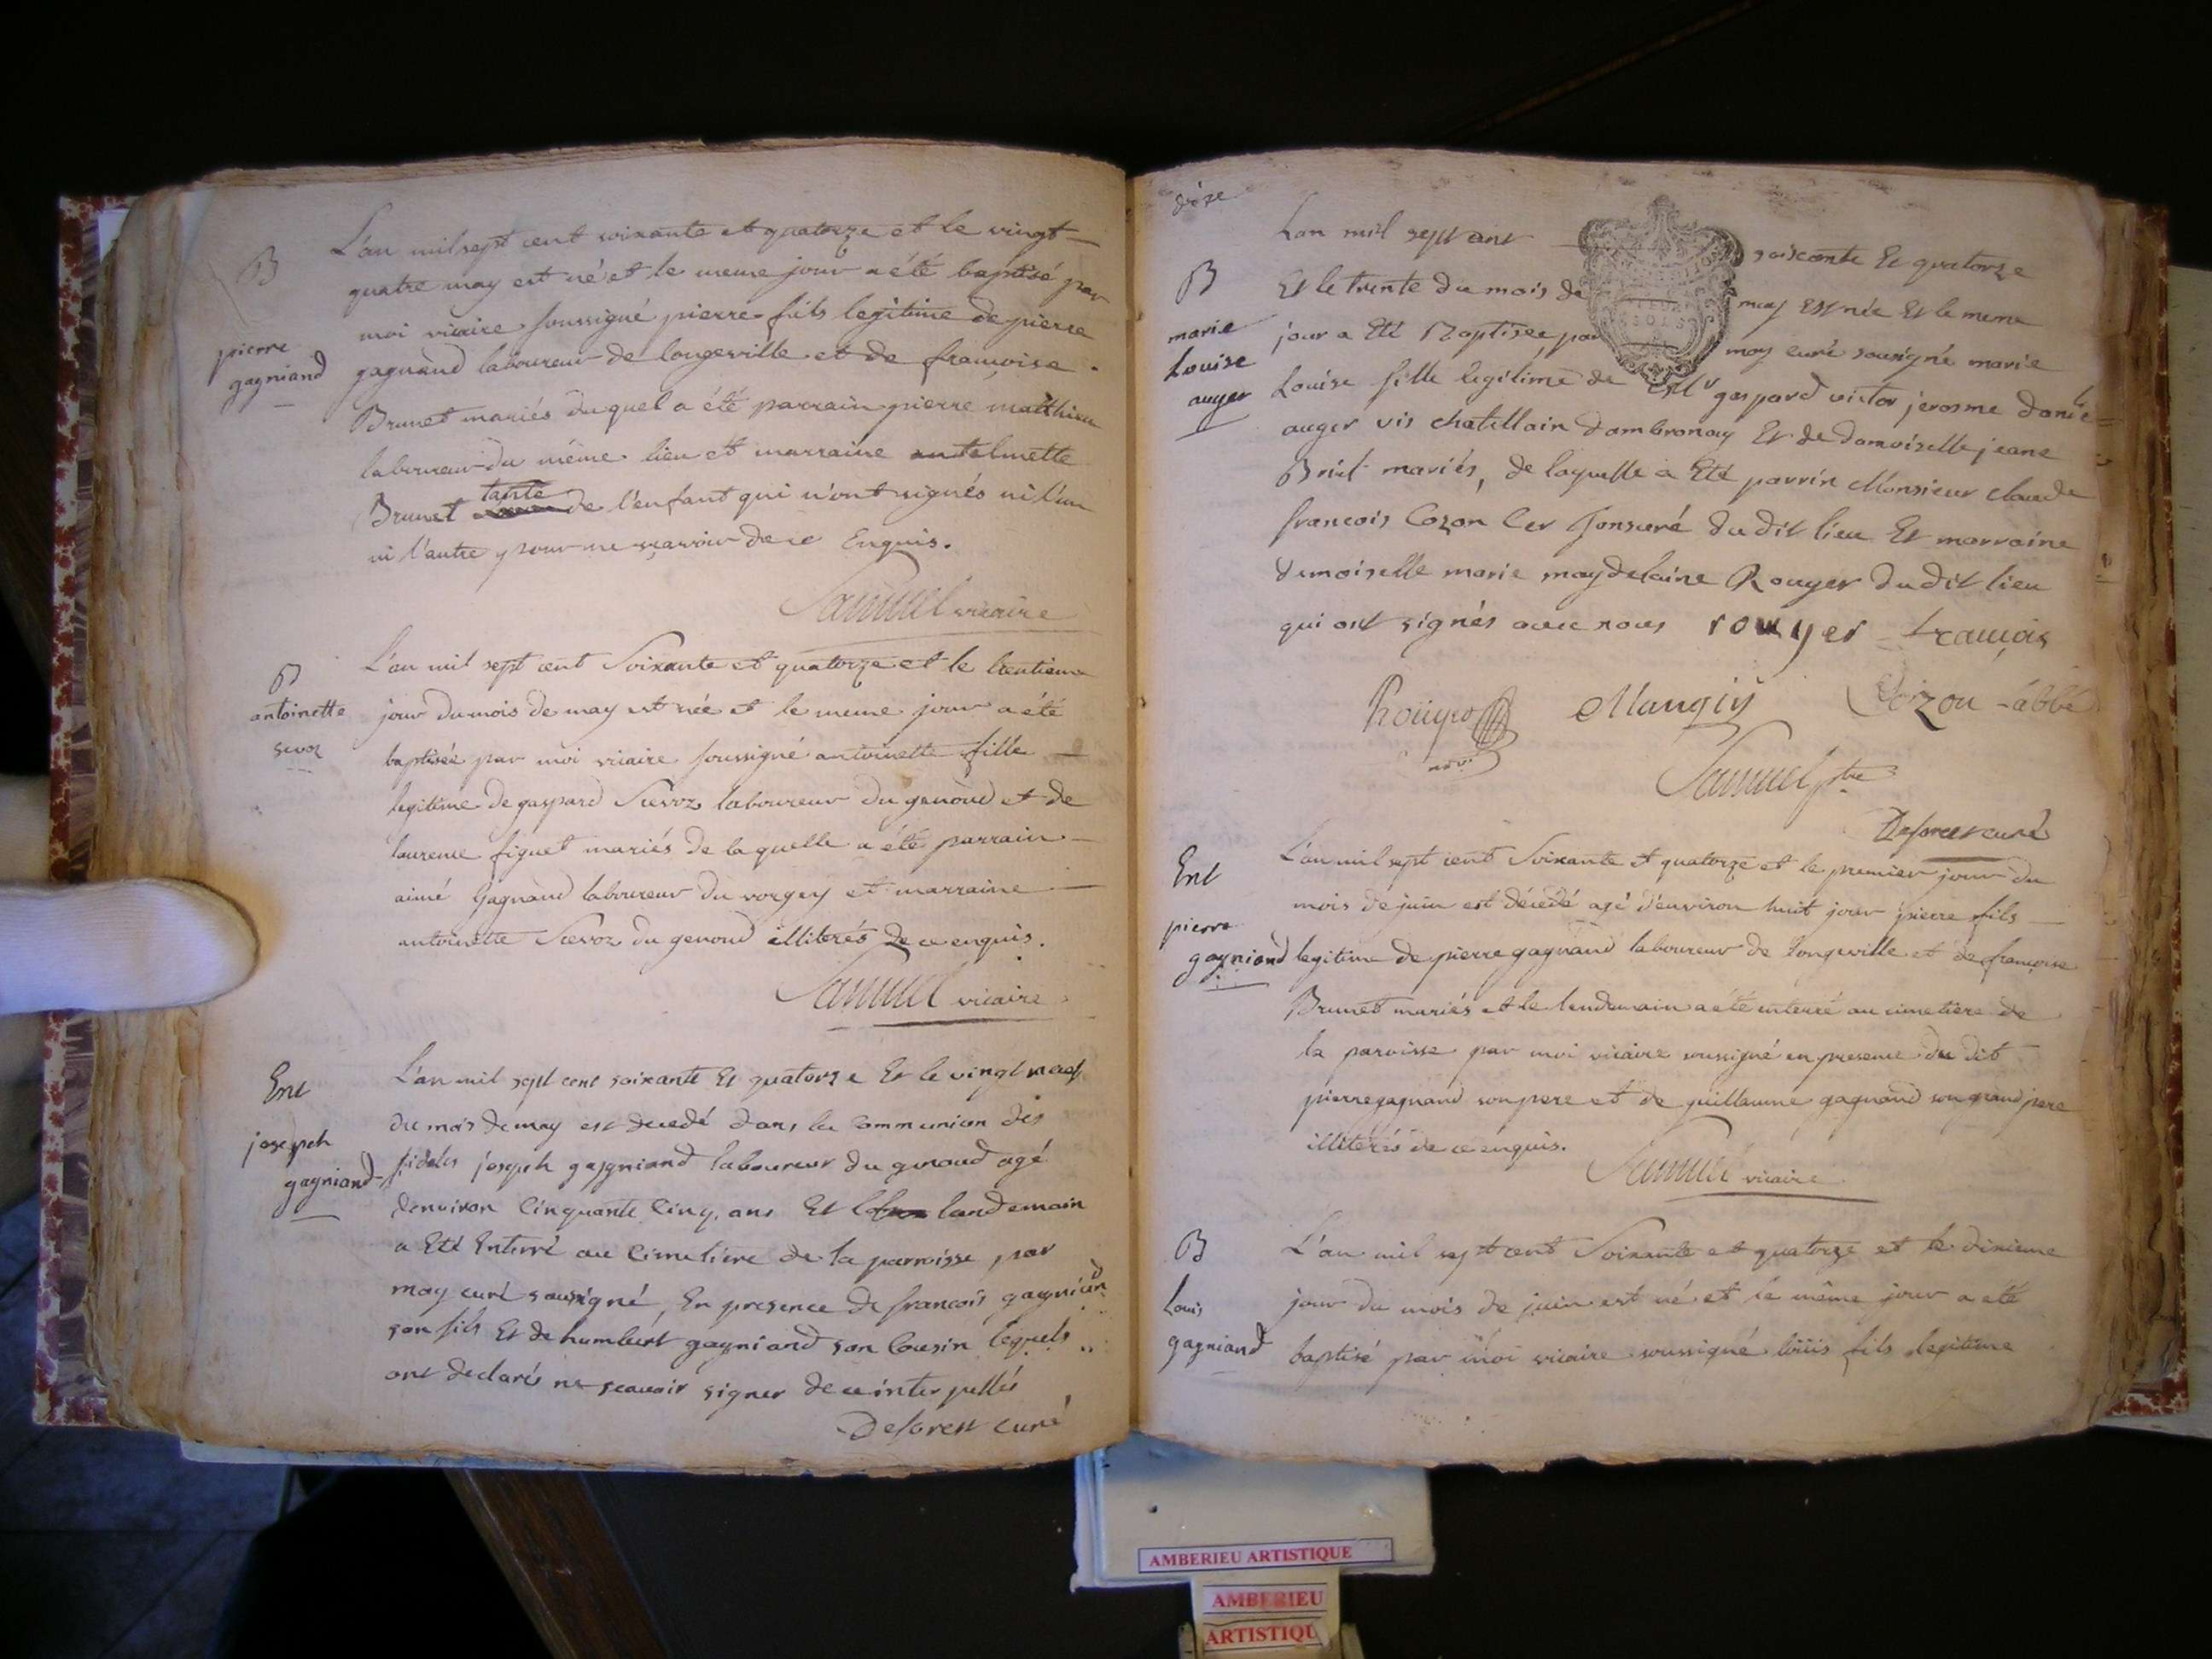 B
pierre
gagniand
L'an mil sept cent soixante et quatorze et le vingt
quatre may est né et le meme jour a été baptisé par
moi vicaire soussigné pierre fils legitime de pierre
gagnand laboureur de longeville et de francoise
Brunet mariés duquel a été parrain pierre matthieu
laboureur du même lieu et marraine antelmette
tante
Brunet de l'enfant qui n'ont signés ni l'un
ni l'autre pour ne sçavoir de ce Enquis.
Samuel vicaire
B
antoinette
sevoz
L'an mil sept cent Soixante et quatorze et le trentieme
jour du mois de may est née et le meme jour a été
baptisée par moi vicaire soussigné antoinette fille
legitime de gaspard Sevoz laboureur du genoud et de
laurence figuet mariés de laquelle a été parrain
aimé Gagnand laboureur du vorgey et marraine
antoinette Sevoz du genoud illiterés de ce enquis.
Samuel vicaire
Ent
joseph
gagniand
L'an mil sept cent soixante Et quatorze Et le vingt neuf
du mois de may est decedé dans la Communion des
fideles joseph gagniand laboureur du genoud agé
denviron Cinquante Cinq ans Et le landemain
a Eté Enterré au Cimetiere de la parroisse par
moy curé sousigné, En presence de francois gagniand
son fils Et de humbert gagniand son Cousin lequels
ont declarés ne scauoir signer de ce interpellés
Deforest curé
B
marie
Louise
auger
Lan mil sept cent soixante Et quatorze
Et le trente du mois de may Est née Et le meme
jour a Eté Baptisée par moy curé sousigné marie
Louise fille legitime de Mr gaspard victor jerosme
auger vis chatellain dambronay Et de damoiselle jeane
mariés, de laquelle a Eté parrin Monsieur claude
francois Cozon Cler Tonsuré du dit lieu Et marraine
demoiselle marie magdelaine Rouyer du dit lieu
qui ont signés avec nous rouyer francois
Rouyer Mangin Cozon abbé
Samuel ptre
Deforest curé
Ent
pierre
gagniand
L'an mil sept cent Soixante et quatorze et le premier jour du
mois de juin est décédé agé d'environ huit jour pierre fils
legitime de pierre gagnand laboureur de longeville et de françoise
Brunet mariés et le lendemain a été enterré au cimetiere de
la paroisse par moi vicaire soussigné en presence du dit
pierre gagnand son pere et de guillaume gagnand son grand pere
illiterés de ce enquis.
Samuel vicaire
B
Louis
gagniand
L'an mil sept cent Soixante et quatorze et le dixieme
jour du mois de juin est né et le même jour a été
baptisé par moi vicaire soussigné loüis fils legitime
AMBERIEU ARTISTIQUE
AMBERIEU
ARTISTIQU